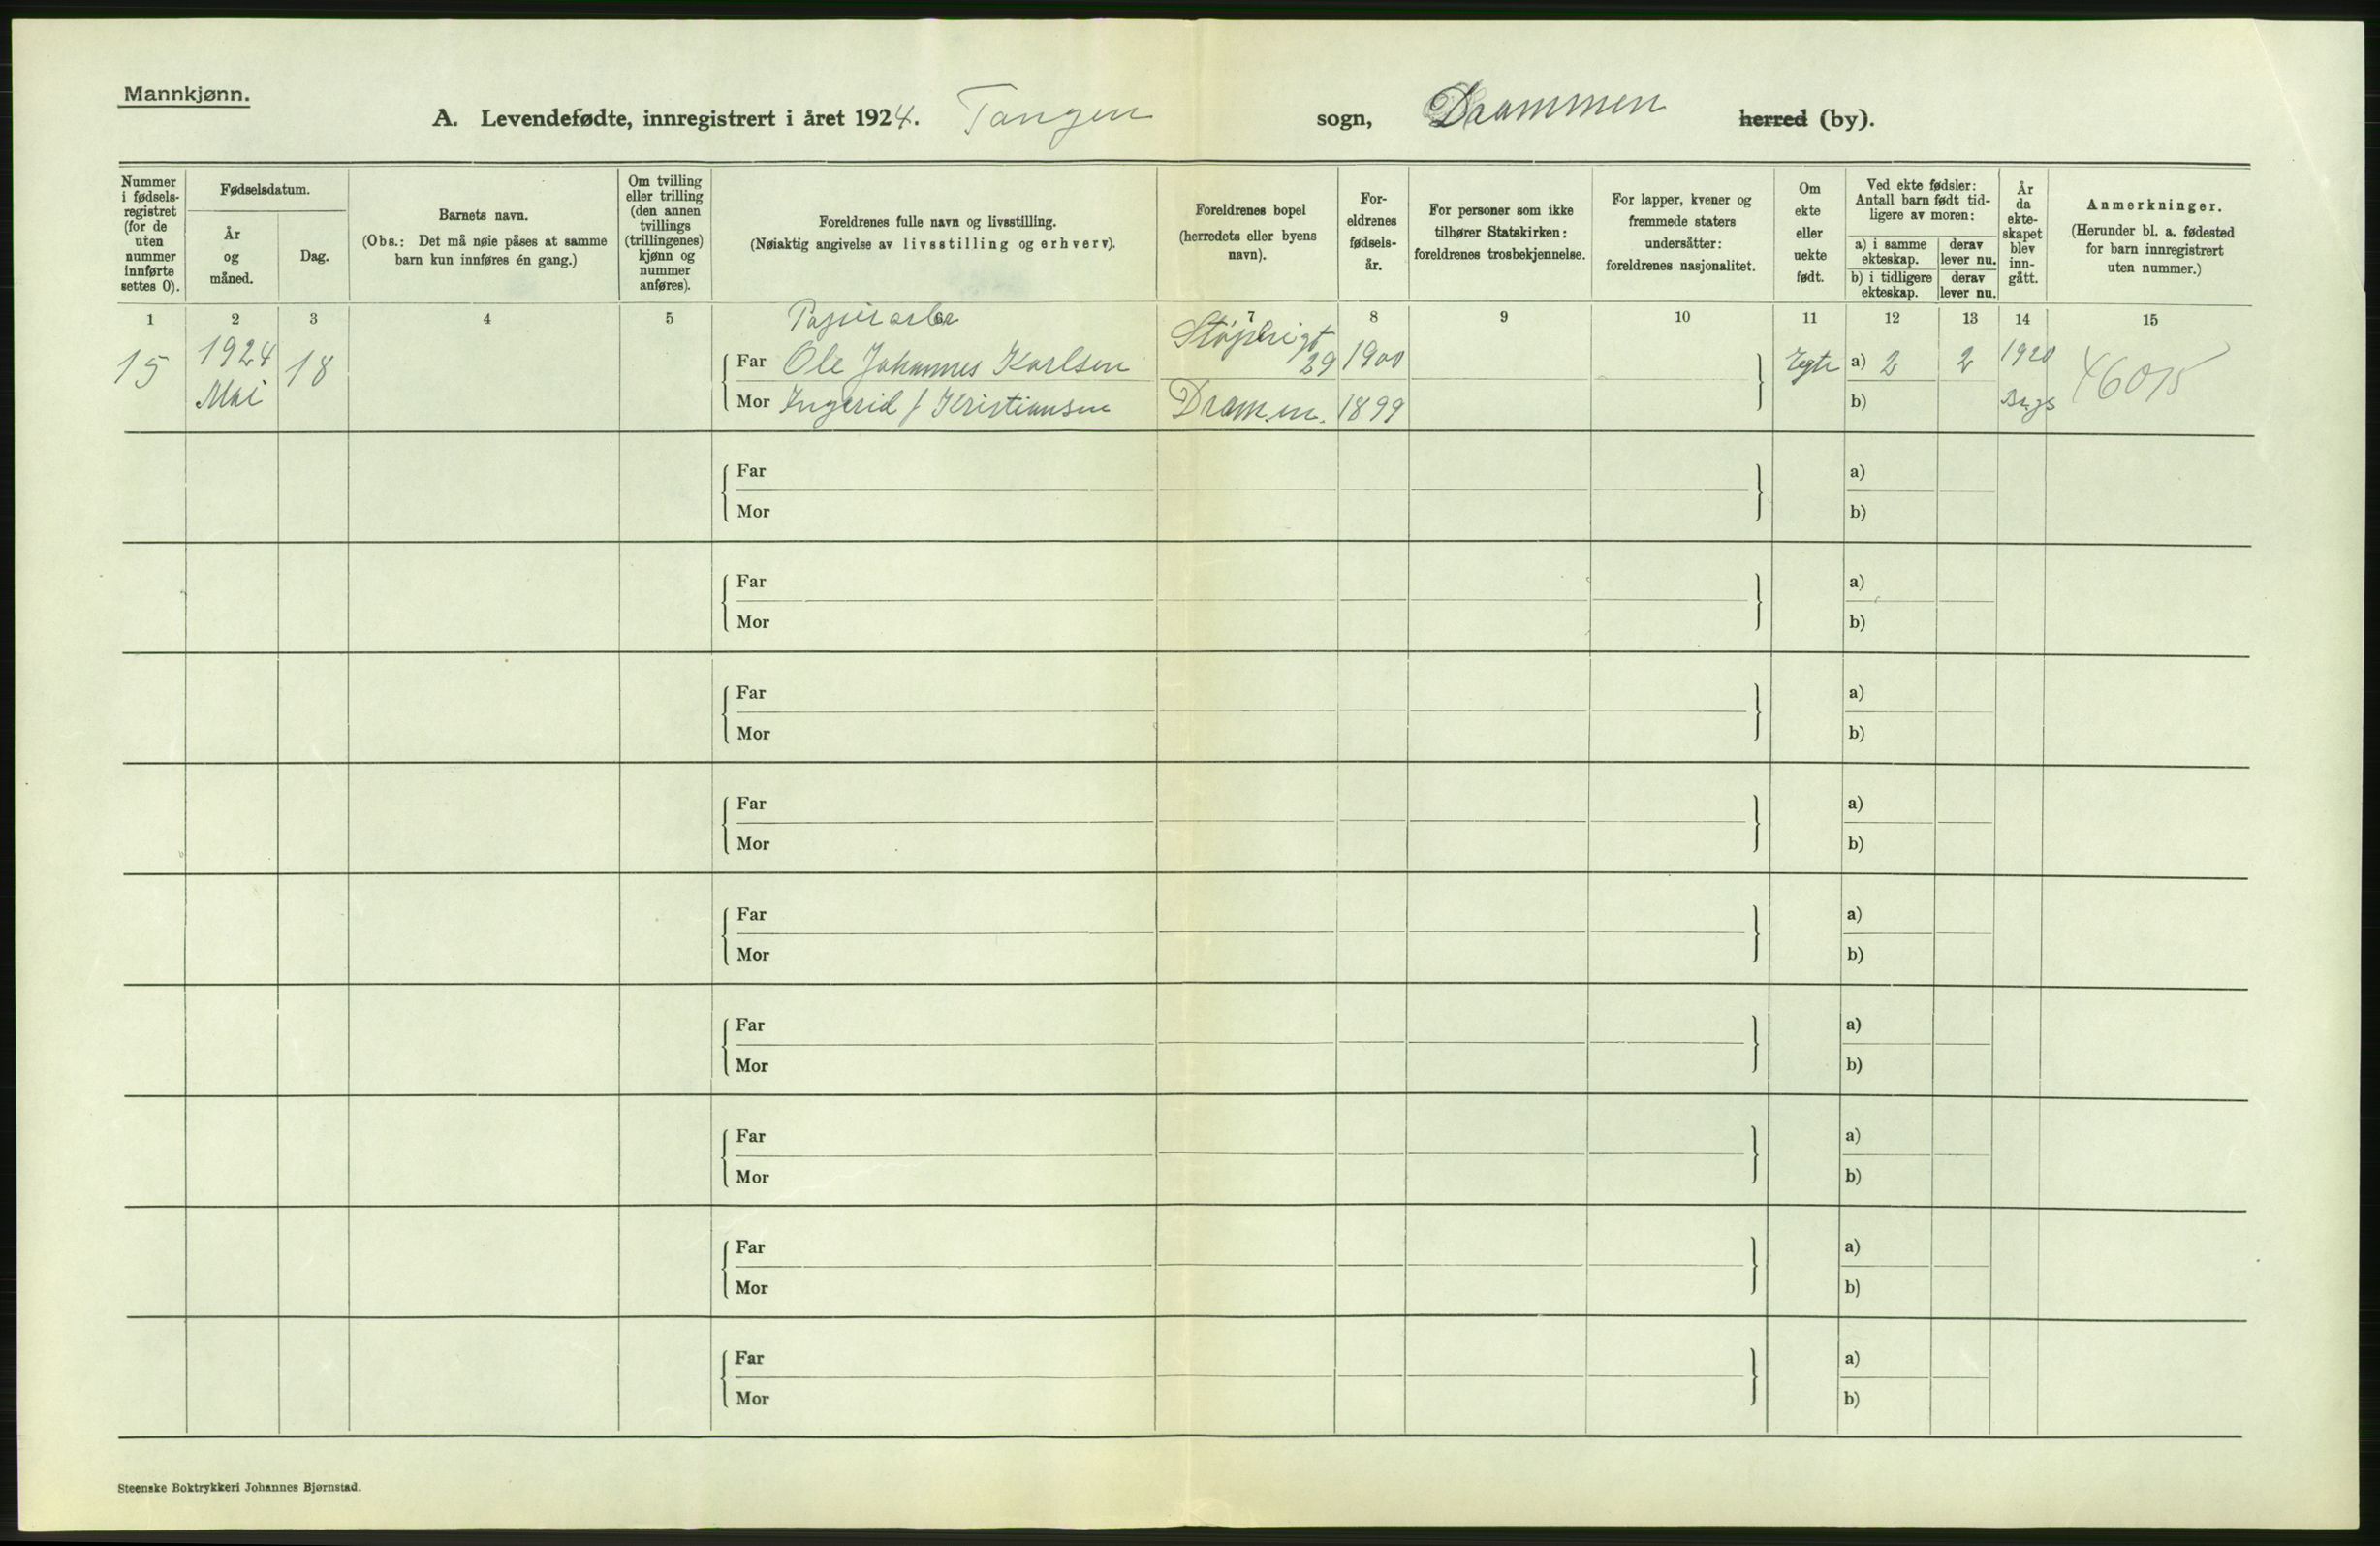 Mannkjønn.
A. Levendefødte, innregistrert i året 1924. Tangen sogn, Drammen herred (by).
Nummer i fødsels- registret (for de uten nummer innførte settes 0).
Fødselsdatum.
År og måned.
Dag.
Barnets navn.
(Obs.: Det må nøie påses at samme barn kun innføres én gang.)
Om tvilling eller trilling (den annen tvillings (trillingenes) kjønn og nummer anføres).
Foreldrenes fulle navn og livsstilling.
(Nøiaktig angivelse av livsstilling og erhverv).
Foreldrenes bopel (herredets eller byens navn).
For- eldrenes fødsels- år.
For personer som ikke tilhører Statskirken: foreldrenes trosbekjennelse.
For lapper, kvener og fremmede staters undersåtter: foreldrenes nasjonalitet.
Om ekte eller uekte født.
Ved ekte fødsler: Antall barn født tid- ligere av moren:
a) i samme ekteskap.
derav lever nu.
b) i tidligere ekteskap.
derav lever nu.
År da ekte- skapet blev inn- gått.
Anmerkninger.
(Herunder bl. a. fødested for barn innregistrert uten nummer.)
1 2 3 4 5 6 7 8 9 10 11 12 13 14 15
Papirarb
15 1924 18 Far Ole Johannes Karlsen 29 1900 Egte a) 2 2 1920
Mai Mor Ingerid f Kristiansen Drammen. 1899 b)
Far a)
Mor b)
Far a)
Mor b)
Far a)
Mor b)
Far a)
Mor b)
Far a)
Mor b)
Far a)
Mor b)
Far a)
Mor b)
Far a)
Mor b)
Far a)
Mor b)
Steenske Boktrykkeri Johannes Bjørnstad.